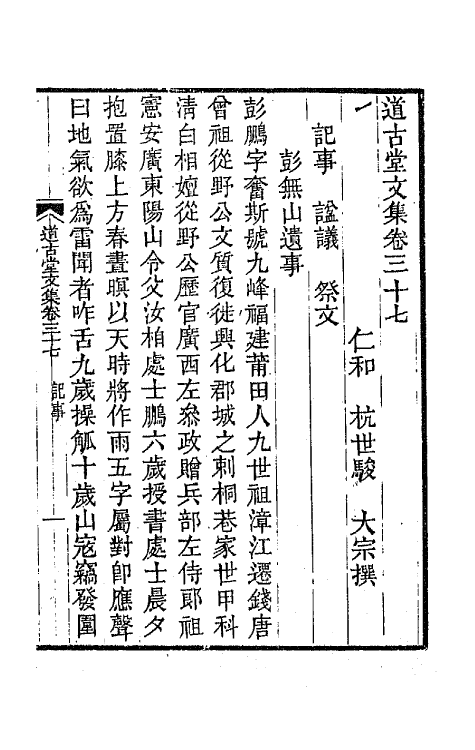 道古堂文集卷三十七
仁和　杭世駿　大宗撰
記事　諡議　祭文
彭無山遺事
彭鵬字奮斯號九峰福建莆田人九世祖漳江遷錢唐
曾祖從野公文質復徙興化郡城之刺桐巷家世甲科
清白相嬗從野公歷官廣西左叅政贈兵部左侍郎祖
憲安廣東陽山令父汝楠處士鵬六歲授書處士晨夕
抱置膝上方春晝暝以天時將作雨五字屬對卽應聲
曰地氣欲爲雷聞者咋舌九歲操觚十歲山寇竊發圍
道古堂文集卷三十七　記事　一